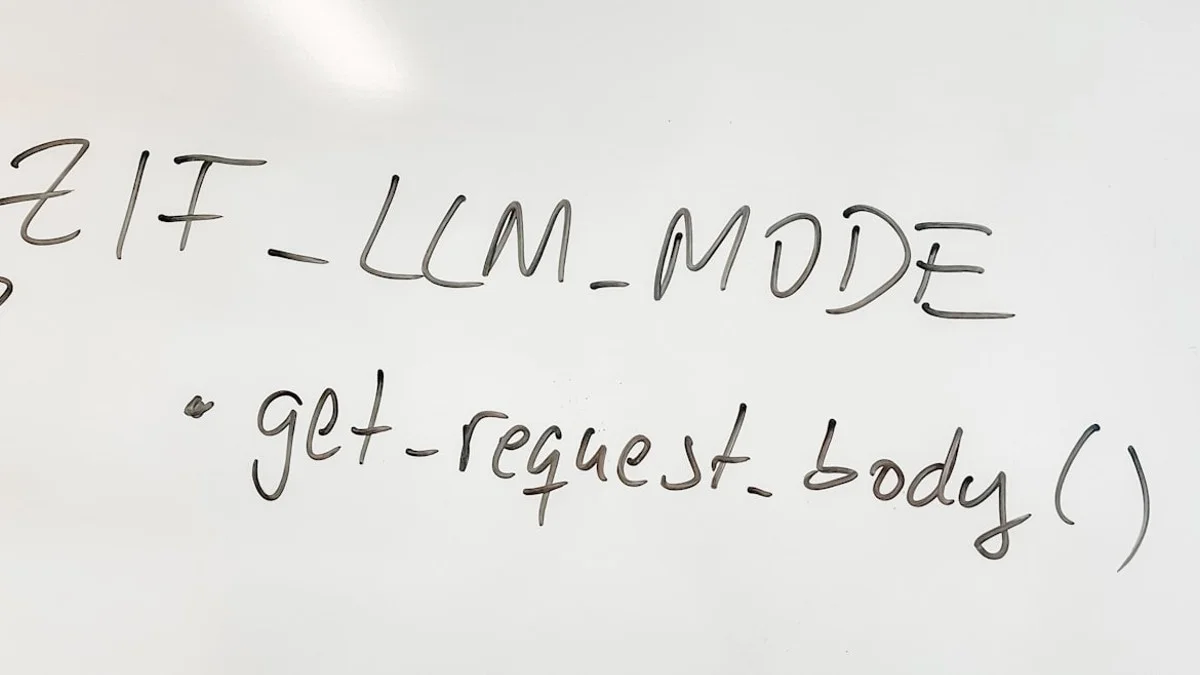 ZIF_LLM_MODE
• get_request_body()